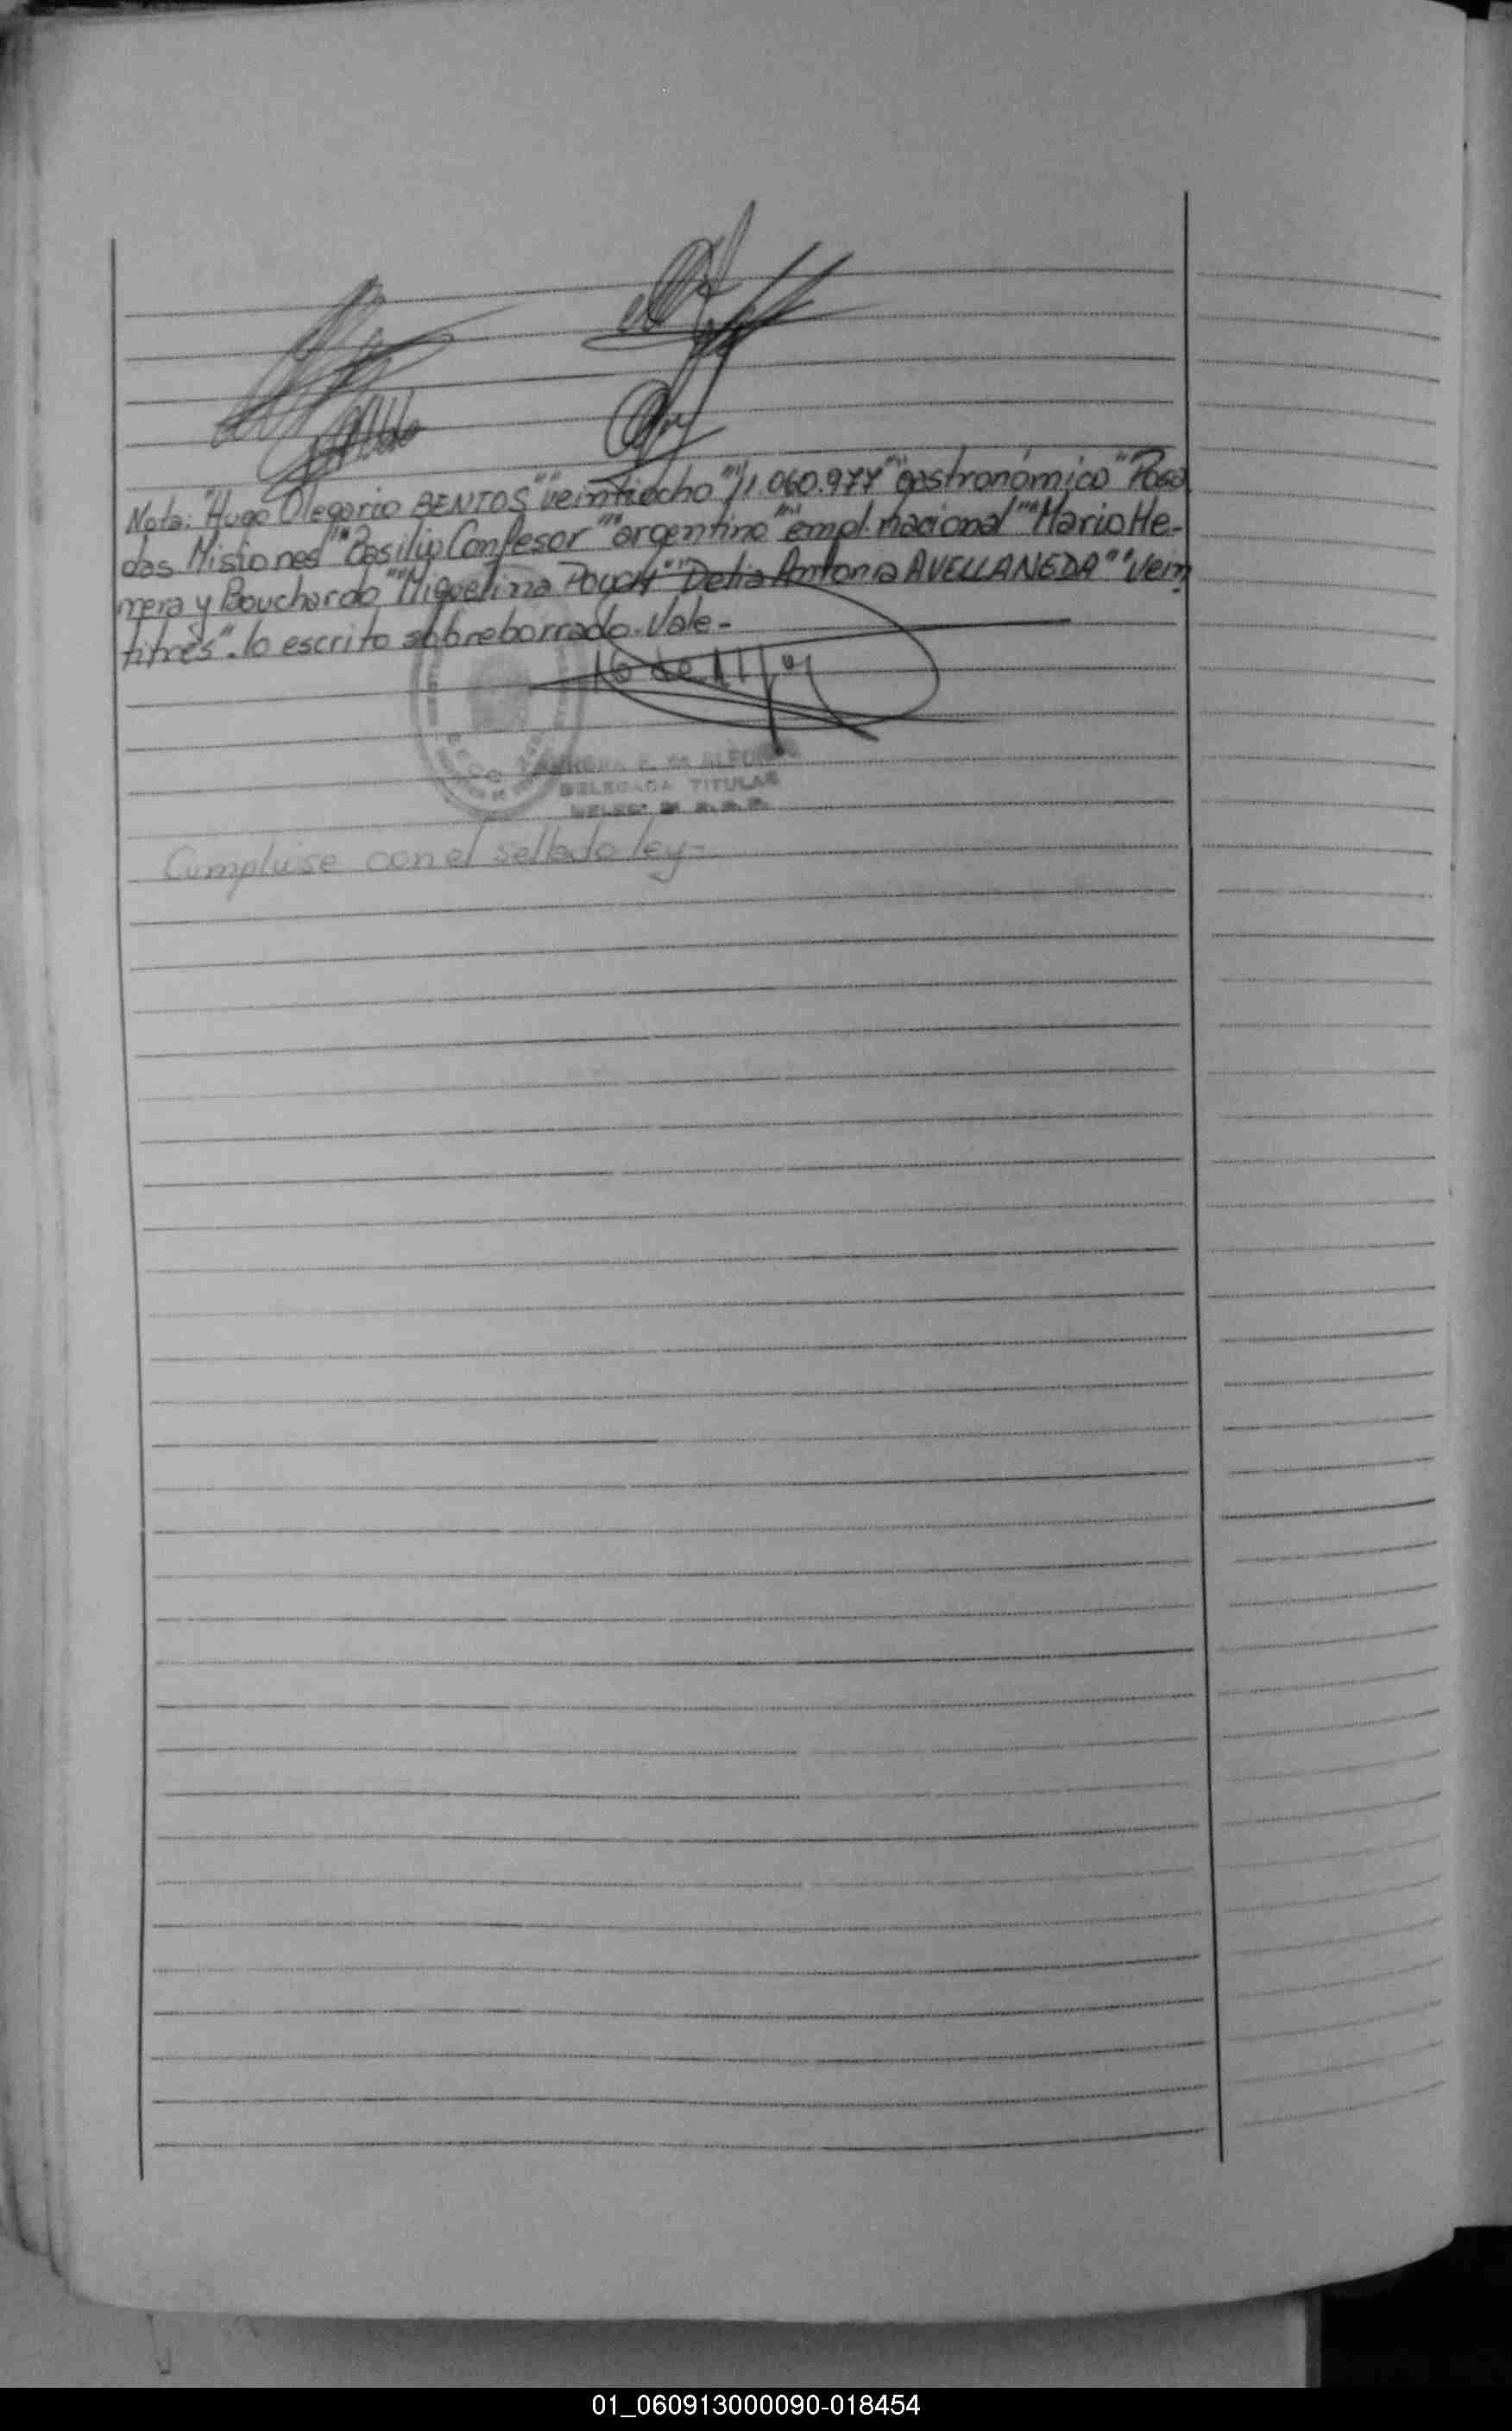 Nota: "Hugo Olegario BENTOS" "veintiocho" "11.060.977" "gastronómico" "Posa
das Misiones" "Basilio Confesor" "argentino" "empl. nacional" "Mario He-
rrera y Bouchardo" "Miguelina POUCH" "Delia Antonia AVELLANEDA" "Vein
titrés". lo escrito sobreborrado. Vale-
DELEGADA TITULAR
Cumpluise con el sellado ley-
01_060913000090-018454